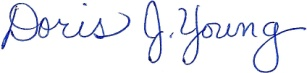 Doris J. Young